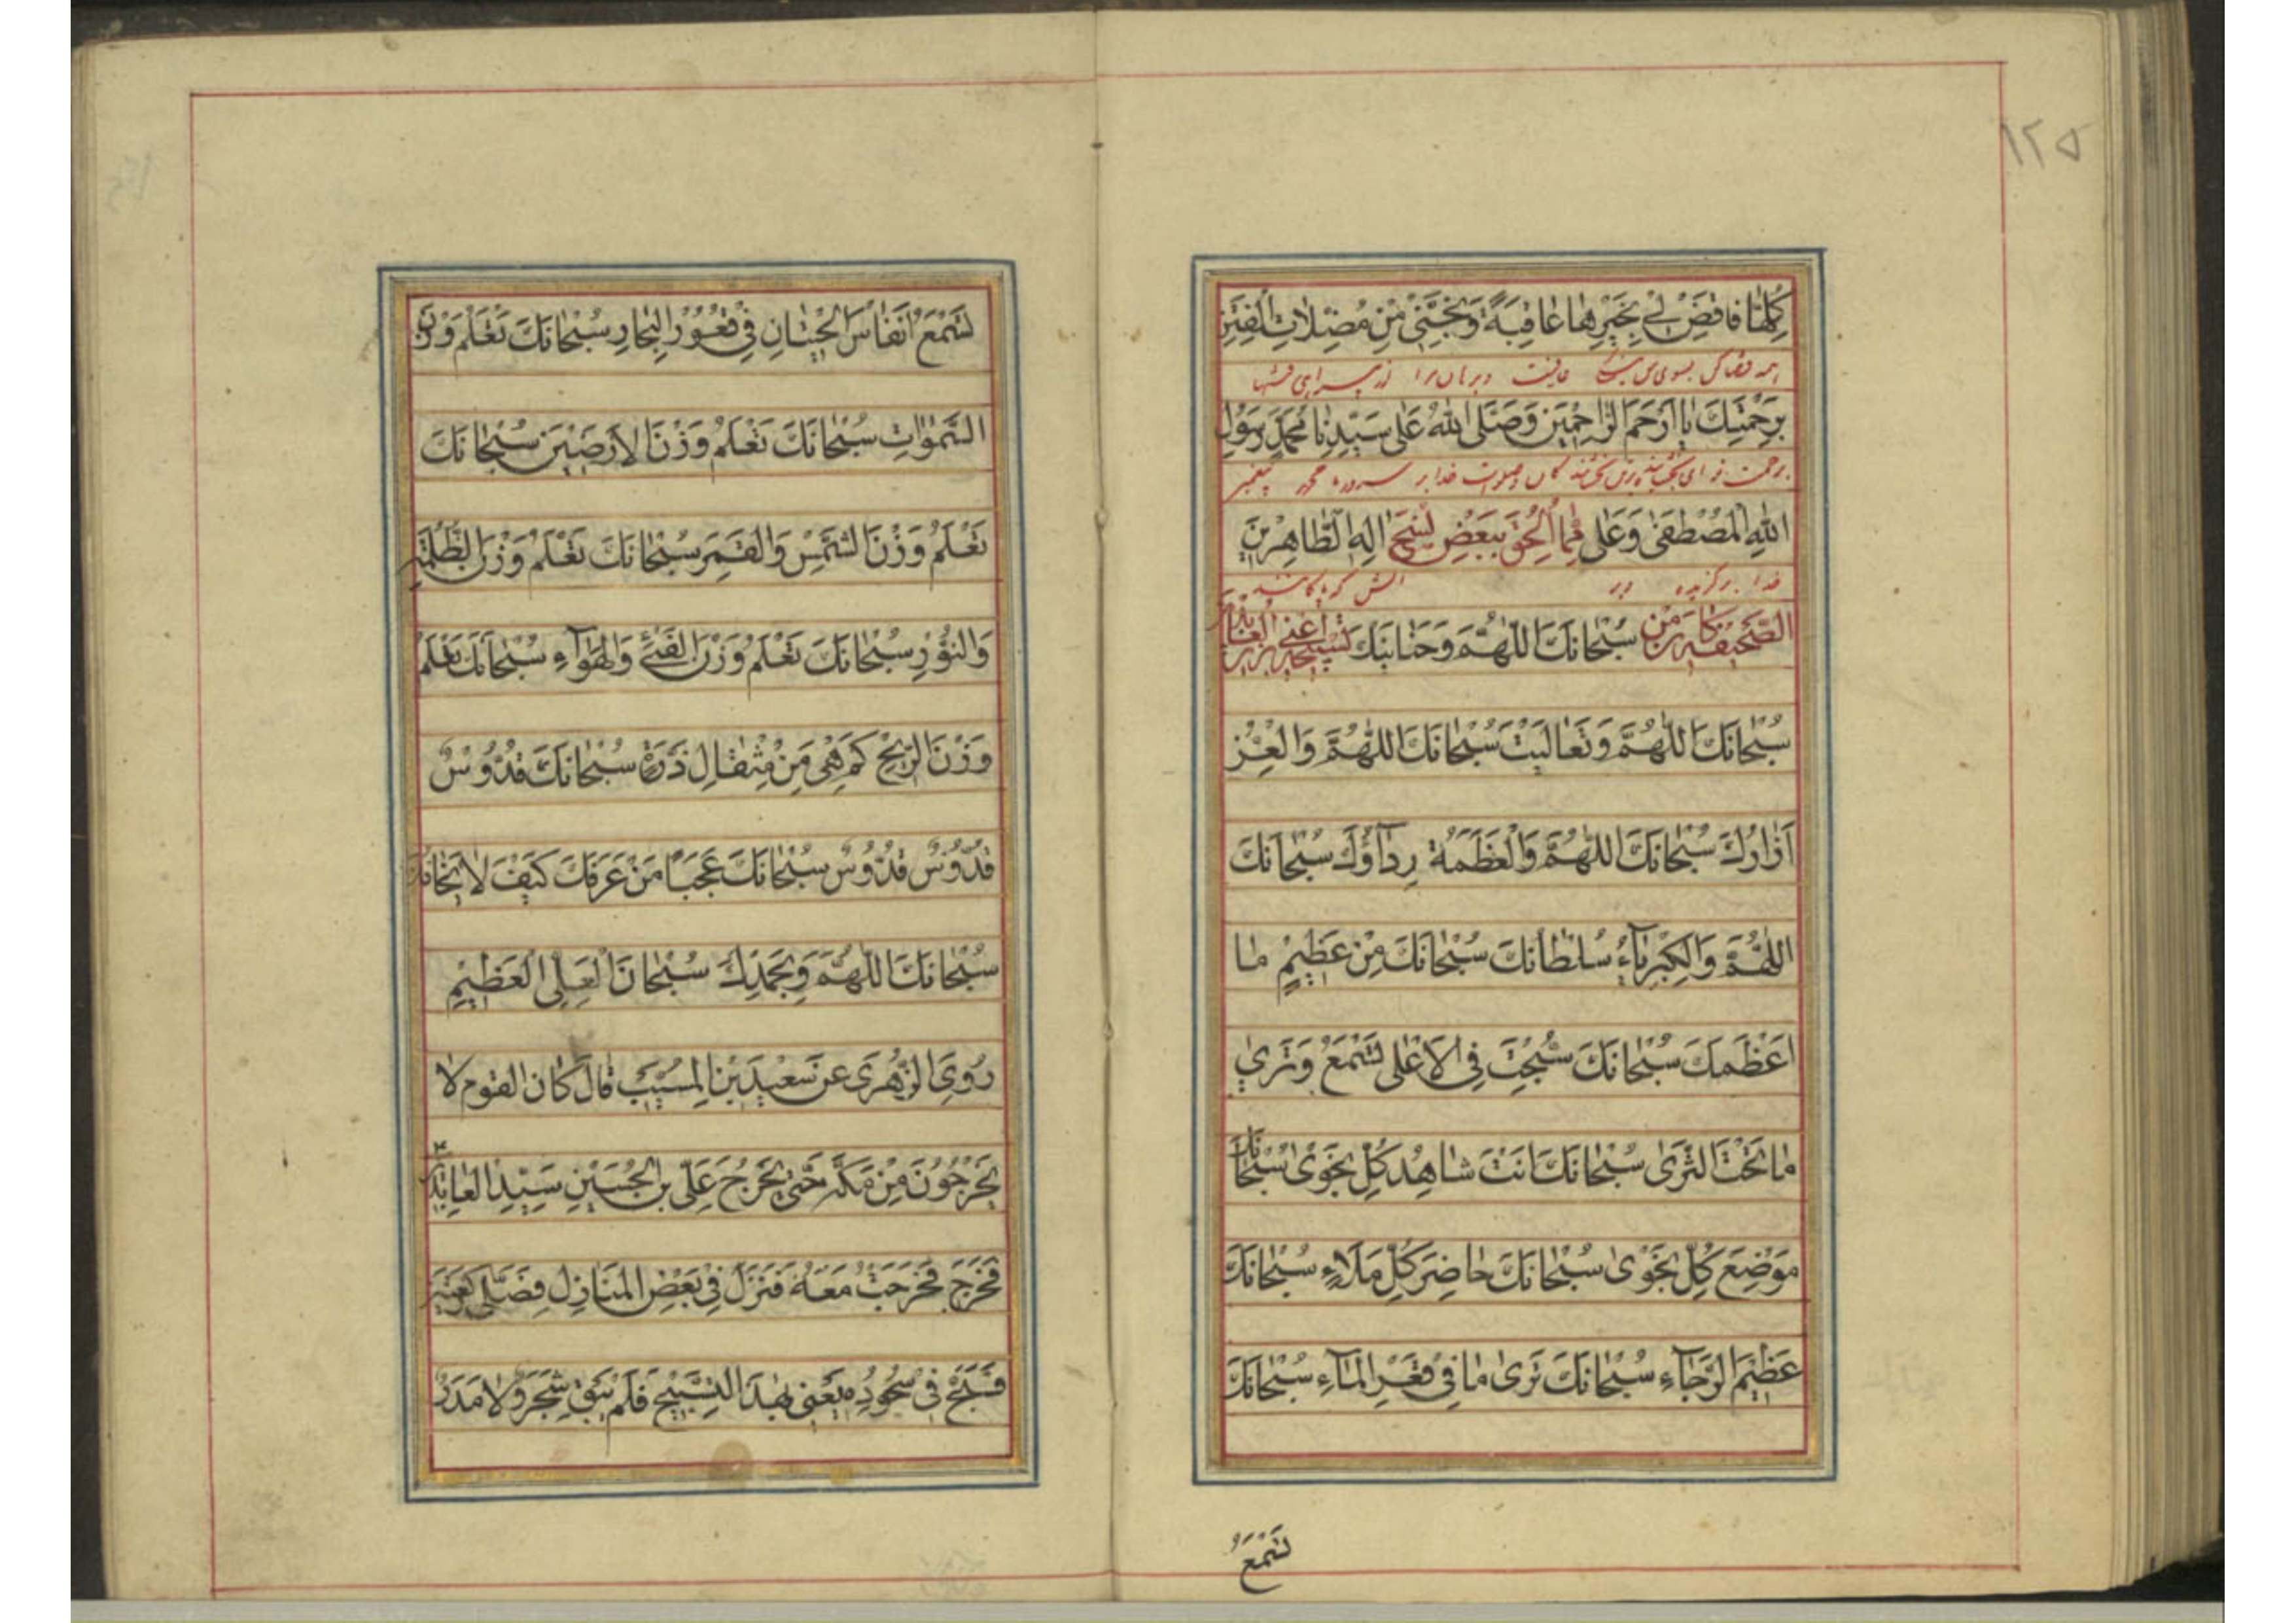 ١٢٥
كُلِّهَا فَاقْضِ لِي بِخَيْرِهَا عَاقِبَةً وَنَجِّنِي مِنْ مُضِلَّاتِ الْفِتَنِ
همه بسوی من عاقبت
بِرَحْمَتِكَ يَا أَرْحَمَ الرَّاحِمِينَ وَصَلَّى اللهُ عَلَى سَيِّدِنَا مُحَمَّدٍ رَسُولِ
برحمت تو ای خدا بر محمد پیغمبر
اللهِ الْمُصْطَفَى وَعَلَى اٰلِهِ الطَّاهِرِينَ مِمَّا أُلْحِقَ بِبَعْضِ نُسَخِ
خدا برگزیده و بر
الصَّحِيفَةِ سُبْحَانَكَ اللّٰهُمَّ وَحَنَانَيْكَ
سُبْحَانَكَ اللّٰهُمَّ وَتَعَالَيْتَ سُبْحَانَكَ اللّٰهُمَّ وَالْعِزُّ
اَزَارُكَ سُبْحَانَكَ اللّٰهُمَّ وَالْعَظَمَةُ رِدَاؤُكَ سُبْحَانَكَ
اللّٰهُمَّ وَالْكِبْرِيَاءُ سُلْطَانُكَ سُبْحَانَكَ مِنْ عَظِيمٍ مَا
اَعْظَمَكَ سُبْحَانَكَ سُبِّحْتَ فِي الْاَعْلَى تَسْمَعُ وَتَرَى
مَا تَحْتَ الثَّرَى سُبْحَانَكَ اَنْتَ شَاهِدُ كُلِّ نَجْوَى سُبْحَانَكَ
مَوْضِعَ كُلِّ نَجْوَى سُبْحَانَكَ حَاضِرَ كُلِّ مَلَاءٍ سُبْحَانَكَ
عَظِيمَ الرَّجَاءِ سُبْحَانَكَ تَرَى مَا فِي قَعْرِ الْمَاءِ سُبْحَانَكَ
تَسْمَعُ
تَسْمَعُ اَنْفَاسَ الْحِيتَانِ فِي قُعُورِ الْبِحَارِ سُبْحَانَكَ تَعْلَمُ وَزْنَ
السَّمٰوَاتِ سُبْحَانَكَ تَعْلَمُ وَزْنَ الْاَرَضِينَ سُبْحَانَكَ
تَعْلَمُ وَزْنَ الشَّمْسِ وَالْقَمَرِ سُبْحَانَكَ تَعْلَمُ وَزْنَ الظُّلْمَةِ
وَالنُّورِ سُبْحَانَكَ تَعْلَمُ وَزْنَ الْفَيْءِ وَالْهَوَاءِ سُبْحَانَكَ تَعْلَمُ
وَزْنَ الرِّيحِ كَمْ هِيَ مِنْ مِثْقَالِ ذَرَّةٍ سُبْحَانَكَ قُدُّوسٌ
قُدُّوسٌ قُدُّوسٌ سُبْحَانَكَ عَجَبًا مَنْ عَرَفَكَ كَيْفَ لَا يَخَافُكَ
سُبْحَانَكَ اللّٰهُمَّ وَبِحَمْدِكَ سُبْحَانَ الْعَلِيِّ الْعَظِيمِ
رُوِيَ الزُّهْرِيَ عَنْ سَعِيدِ بْنِ الْمُسَيِّبِ قَالَ كَانَ الْقَوْمُ لَا
يَخْرُجُونَ مِنْ مَكَّةَ حَتَّى يَخْرُجَ عَلِيُّ بْنُ الْحُسَيْنِ سَيِّدُ الْعَابِدِينَ
فَخَرَجَ فَخَرَجْتُ مَعَهُ فَنَزَلَ فِي بَعْضِ الْمَنَازِلِ فَصَلَّى رَكْعَتَيْنِ
فَسَبَّحَ فِي سُجُودِهِ يَعْنِي بِهٰذَا التَّسْبِيحِ فَلَمْ يَبْقَ شَجَرٌ وَلَا مَدَرٌ